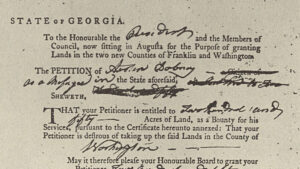 STATE OF GEORGIA.
To the Honourable the President and the Members of
Council, now sitting in Augusta for the Purpose of granting
Lands in the two new Counties of Franklin and Washington.
The PETITION of
as a Refugee in the State aforesaid,
SHEWETH,
THAT your Petitioner is entitled to Two hundred and
fifty Acres of Land, as a Bounty for his
Services, pursuant to the Certificate hereunto annexed: That your
Petitioner is desirous of taking up the said Lands in the County of
Washington
May it therefore please your Honourable Board to grant your
Petitioner